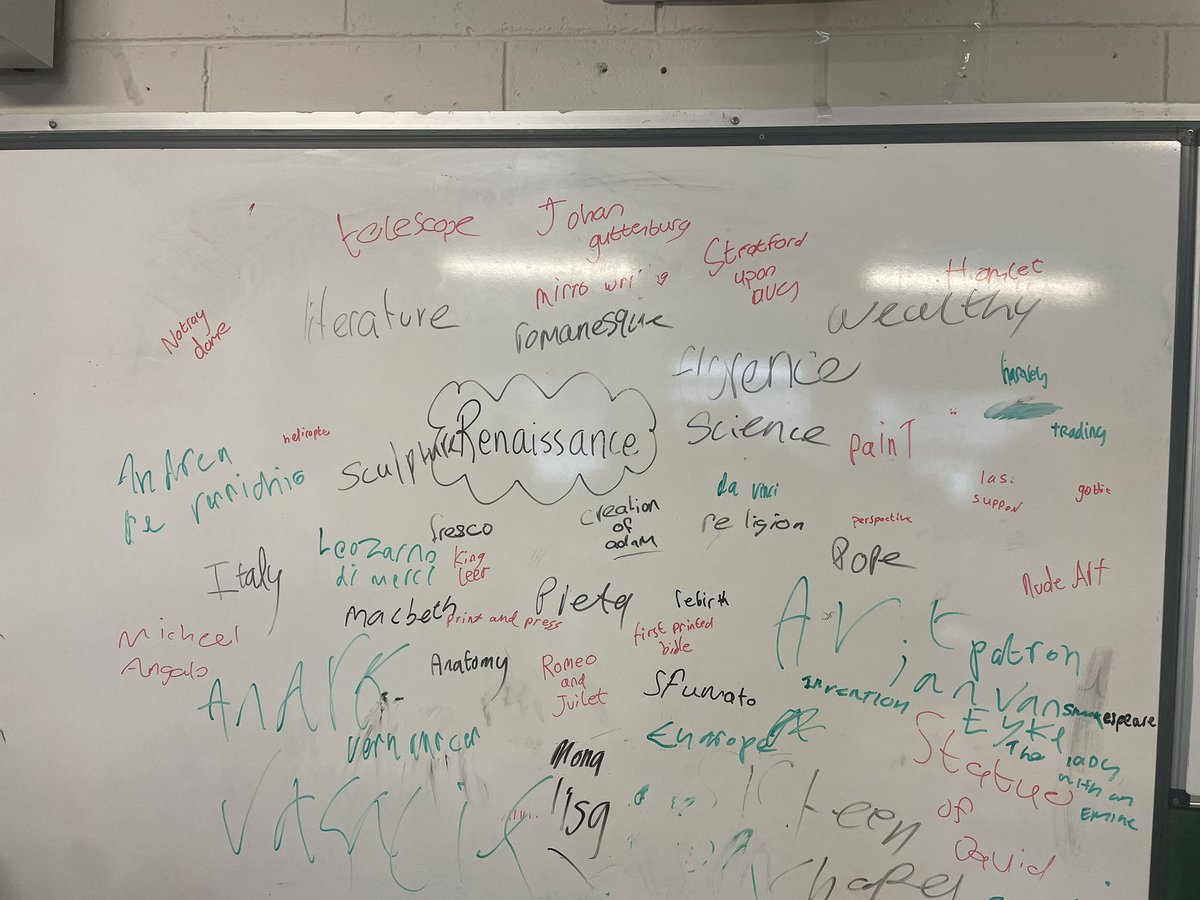 telescope
Johan
guttenburg
Stratford
upon
Hamlet
mirro wri ig
literature
romanesque
wealthy
Notray
dame
florence
Renaissance
science
sculpture
paint
trading
helicopter
Andrea
da vinci
religion
creation
of
adam
fresco
perspective
gothic
Leozarno
di merci
king
leer
Pope
Italy
Nude Art
macbeth
print and press
Pieta
rebirth
first printed
bible
Art
patron
Micheel
Angalo
Anatomy
Romeo
and
Juilet
sfumato
invention
jan van
Eyke
Shakespeare
vernaucer
Europe
Mona
lisa
The lady
with an
Ermine
Statue
of
David
Sisteen
chapel